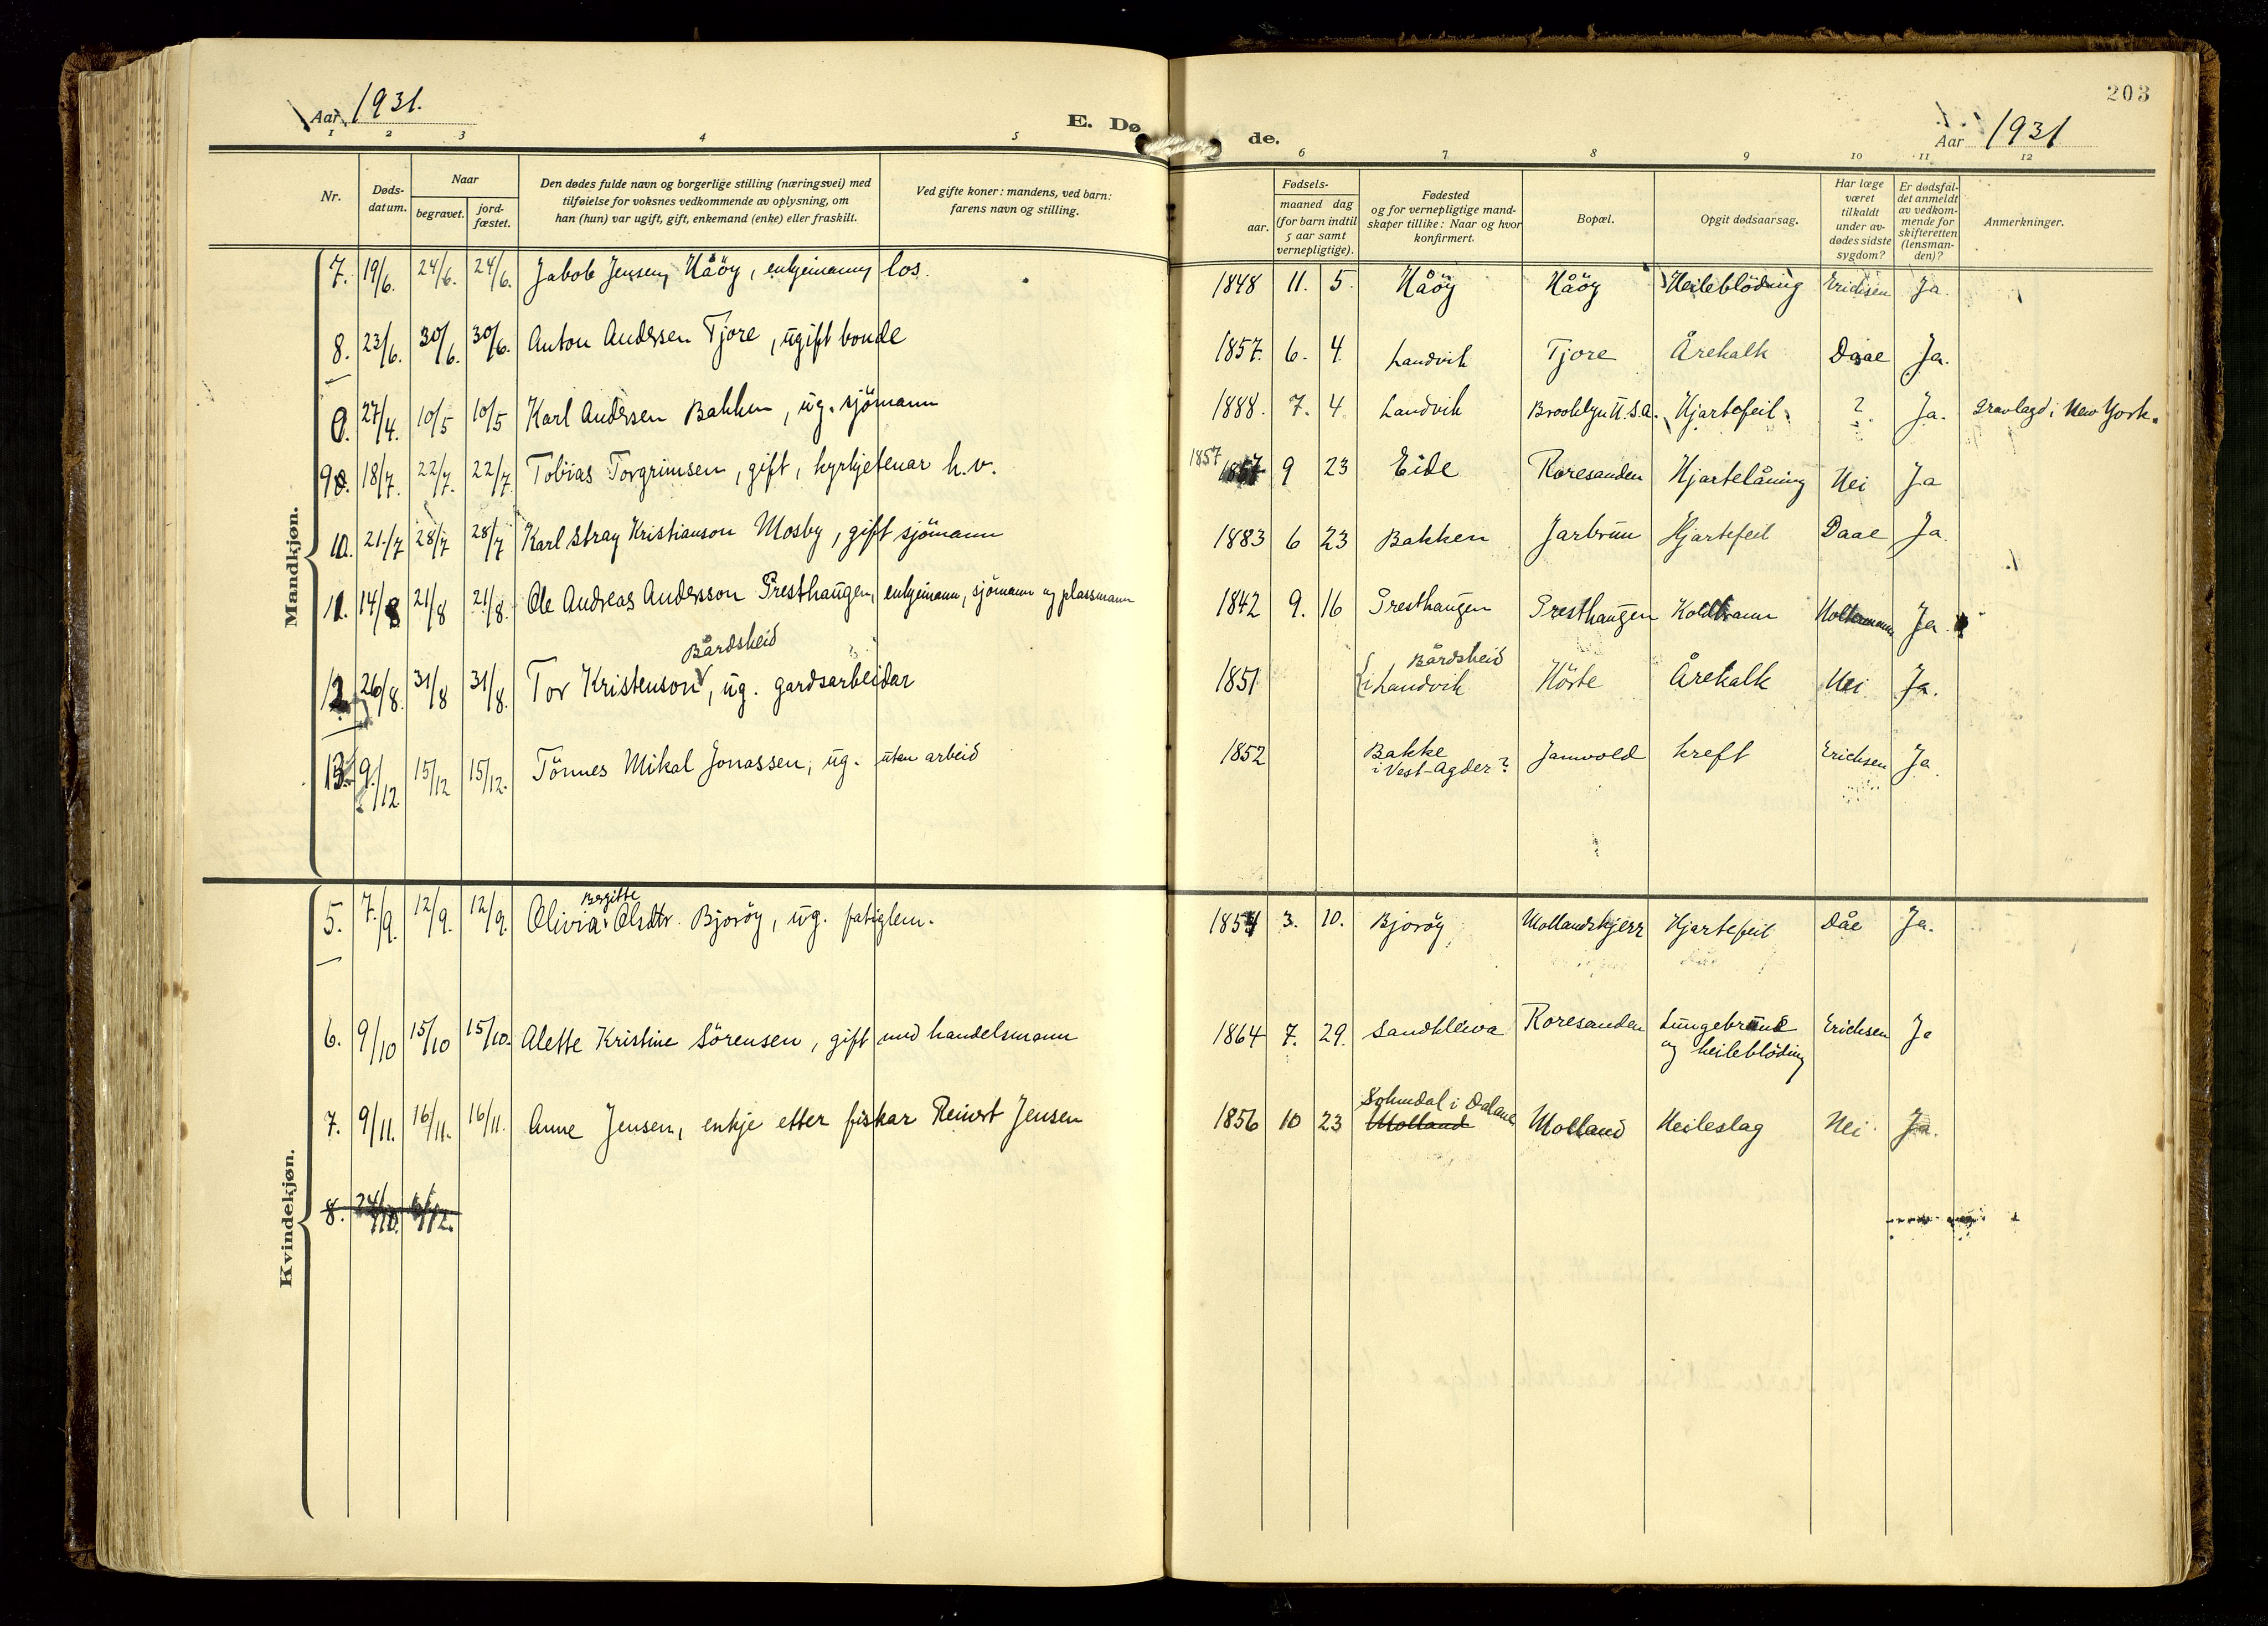 Aar 1931.
E. Dø de.
Aar 1931
203
1 2 3 4 5 6 7 8 9 10 11 12
Nr.
Dødsdatum.
Naar
begravet.
jordfæstet.
Den dødes fulde navn og borgerlige stilling (næringsvei) med
tilføielse for voksnes vedkommende av oplysning, om
han (hun) var ugift, gift, enkemand (enke) eller fraskilt.
Ved gifte koner: mandens, ved barn:
farens navn og stilling.
Fødsels-
aar.
maaned dag
(for barn indtil
5 aar samt
vernepligtige).
Fødested
og for vernepligtige mand-
skaper tillike: Naar og hvor
konfirmert.
Bopæl.
Opgit dødsaarsag.
Har læge
været
tilkaldt
under av-
dødes sidste
sygdom?
Er dødsfal-
det anmeldt
av vedkom-
mende for
skifteretten
(lensman-
den)?
Anmerkninger.
Mandkjøn.
7. 19/6. 24/6. 24/6. Jakob Jensen, Håöy, enkjemann, los. 1848 11. 5. Håöy Håöy Heileblöding Erichsen Ja.
8. 23/6. 30/6. 30/6. Anton Andersen Tjore, ugift bonde 1857. 6. 4. Landvik Tjore Årekalk Daae Ja.
9. 27/4. 10/5 10/5 Karl Andersen Bakken, ug. sjömann 1888. 7. 4 Landvik Brooklyn U.S.A. Hjartefeil ? Ja. Gravlagd i New York.
90. 18/7. 22/7. 22/7 Tobias Torgrimsen, gift, kyrkjetenar h.v. 1857 1857 9 23 Eide Roresanden Hjartelåming Nei Ja
10. 21./7 28/7 28/7 Karl Stray Kristianson Mosby, gift sjömann 1883 6 23 Bakken Jarbrun Hjartefeil Daae Ja.
11. 14/8 21/8 21/8. Ole Andreas Andersson Presthaugen, enkjemann, sjömann og plassmann 1842 9. 16 Presthaugen Presthaugen Koldbrann Holtermann Ja.
Bårdsheid
12 26/8. 31/8 31/8. Tor Kristenson V, ug. gardsarbeidar 1851 Bårdsheid i Landvik Hörte Årekalk Nei Ja.
13. 9./12 15/12 15/12. Tönnes Mikal Jonassen, ug. utan arbeid 1852 Bakke i Vest-Agder? Jamvold kreft Erichsen Ja.
Kvindekjøn.
Bergitte
5. 7./9. 12/9. 12/9. Olivia Olsdtr. Bjoröy, ug. fatiglem. 1854 3. 10. Bjoröy Mollandskjerr Hjartefeil Dåe Ja.
6. 9/10 15/10 15/10. Alette Kristine Sörensen, gift med handelsmann 1864 7. 29. Sandkleiva Roresanden Lungebrune og heileblöding Erichsen Ja
7. 9/11. 16/11. 16/11. Anne Jensen, enkje etter fiskar Reinert Jensen 1856 10 23 Sokndal i Dalane Molland Molland Heileslag Nei Ja.
8. 24/10.